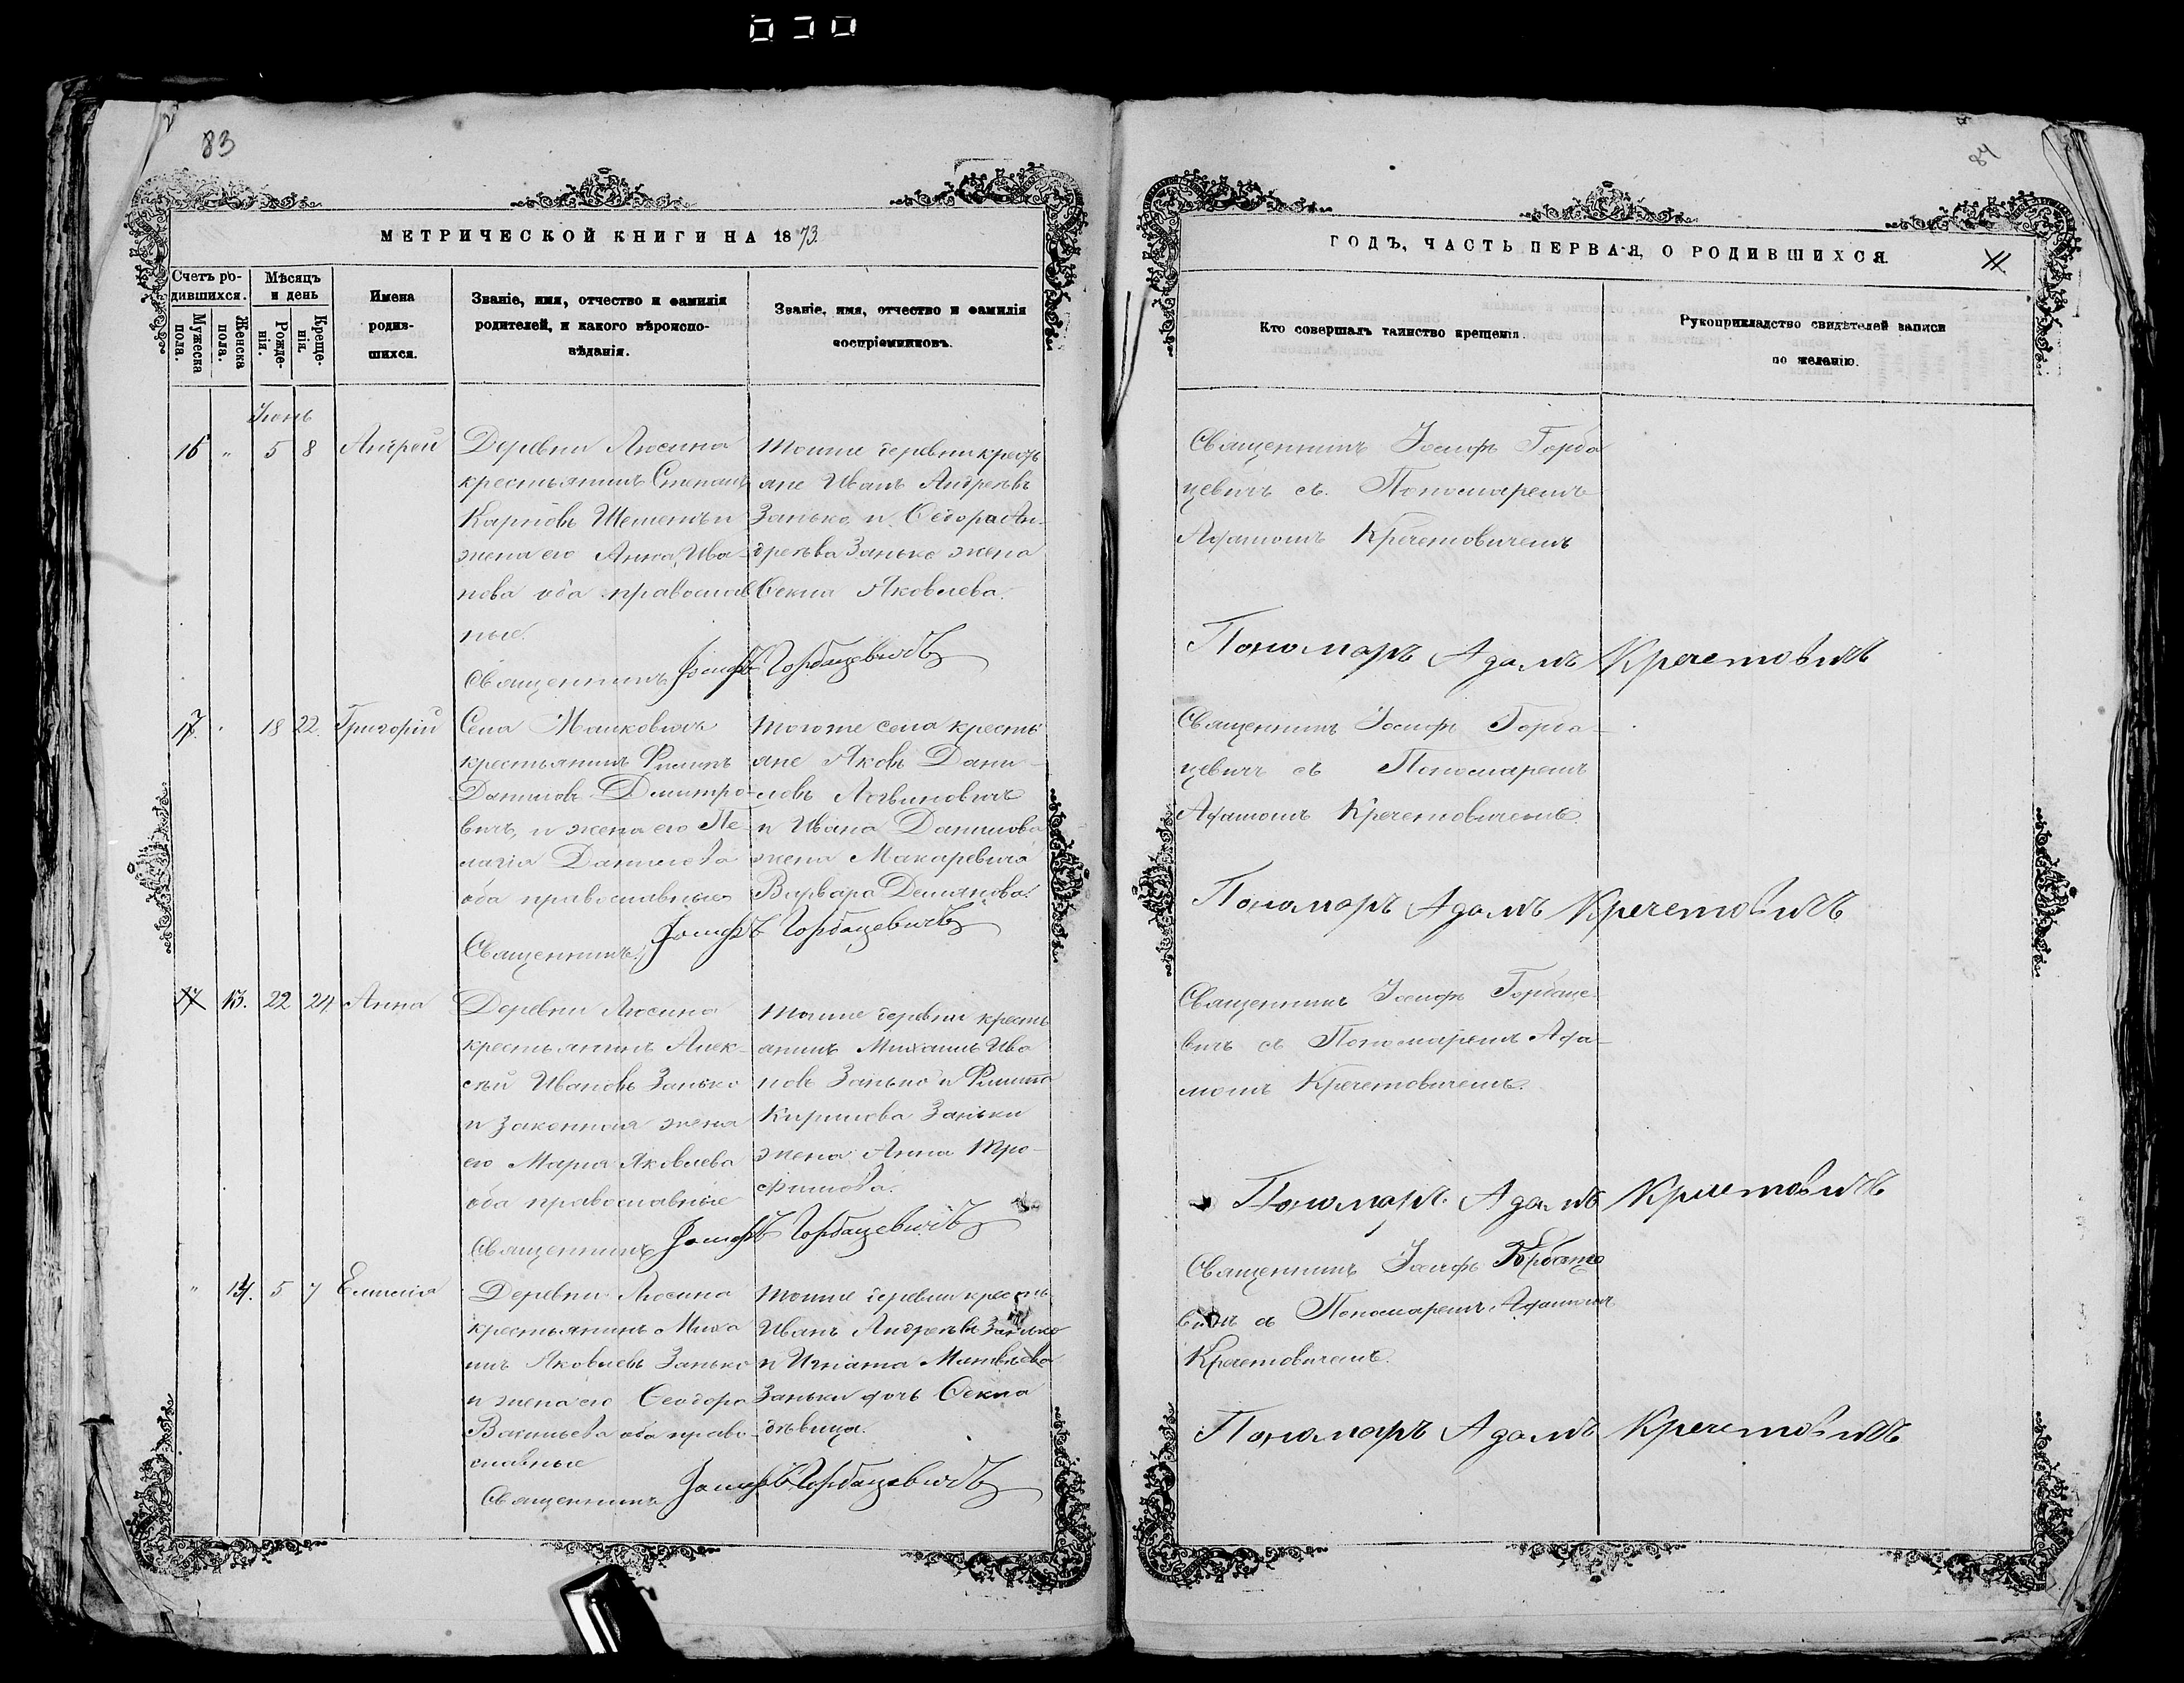 83
МЕТРИЧЕСКОЙ КНИГИ НА 1873.
Счетъ ро-
дившихся.
Мужеска
пола.
Женска
пола.
Мѣсяцъ
и день
Рожде-
нія.
Креще-
нія.
Имена
родив-
шихся.
Званіе, имя, отчество и фамилія
родителей, и какого вѣроиспо-
вѣданія.
Званіе, имя, отчество и фамилія
воспріемниковъ.
Іюнь
16 " 5 8 Андрей
Деревни Люсина
крестьянинъ Степанъ
Карповъ и
жена его Анна Ива-
нова оба православ
ные.
Тойже деревни кресть
яне Иванъ Андреевъ
Занько и Ѳедора Ан-
дреева Занько жена
Ѳекла Яковлева.
Священникъ Іосифъ Горбацевичъ
17 " 18 22. Григорій
Села Малковичъ
крестьянинъ Филипъ
Даниловъ Дмитро-
вичъ, и жена его Пе-
лагія Данилова
оба православные
Тогоже села кресть
яне Яковъ Дани-
ловъ Логвиновичъ
и Ивана Данилова
жена Макаревича
Варвара Демянова.
Священникъ Іосифъ Горбацевичъ
17 13. 22 24 Анна
Деревни Люсина
крестьянинъ Алек-
сѣй Ивановъ Занько
и законная жена
его Марія Яковлева
оба православные
Тойже деревни кресть
янинъ Михаилъ Ива
новъ Занько и Филиппа
Кирилова Заньки
жена Анна Тро-
фимова.
Священникъ Іосифъ Горбацевичъ
" 14. 5 7 Емилія
Деревни Люсина
крестьянинъ Миха
илъ Яковлевъ Занько
и жена его Ѳеодора
Васильева оба право-
славные
Тойже деревни кресть
Иванъ Андреевъ Занько
и Игната Матвѣева
Заньки дочь Ѳекла
дѣвица.
Священникъ Іосифъ Горбацевичъ
84
ГОДЪ, ЧАСТЬ ПЕРВАЯ, О РОДИВШИХСЯ.
Кто совершалъ таинство крещенія.
Рукоприкладство свидѣтелей записи
по желанію.
Священникъ Іосифъ Горба
цевичъ съ Пономаремъ
Адамомъ Кречетовичемъ
Пономарь Адамъ Кречетовичъ
Священникъ Іосифъ Горба-
цевичъ съ Пономаремъ
Адамомъ Кречетовичемъ.
Пономарь Адамъ Кречетовичъ
Священникъ Іосифъ Горбаце-
вичъ съ Пономаремъ Ада-
момъ Кречетовичемъ.
Пономарь Адамъ Кречетовичъ
Священникъ Іосифъ Горбаце
вичъ съ Пономаремъ Адамомъ
Кречетовичемъ.
Пономарь Адамъ Кречетовичъ